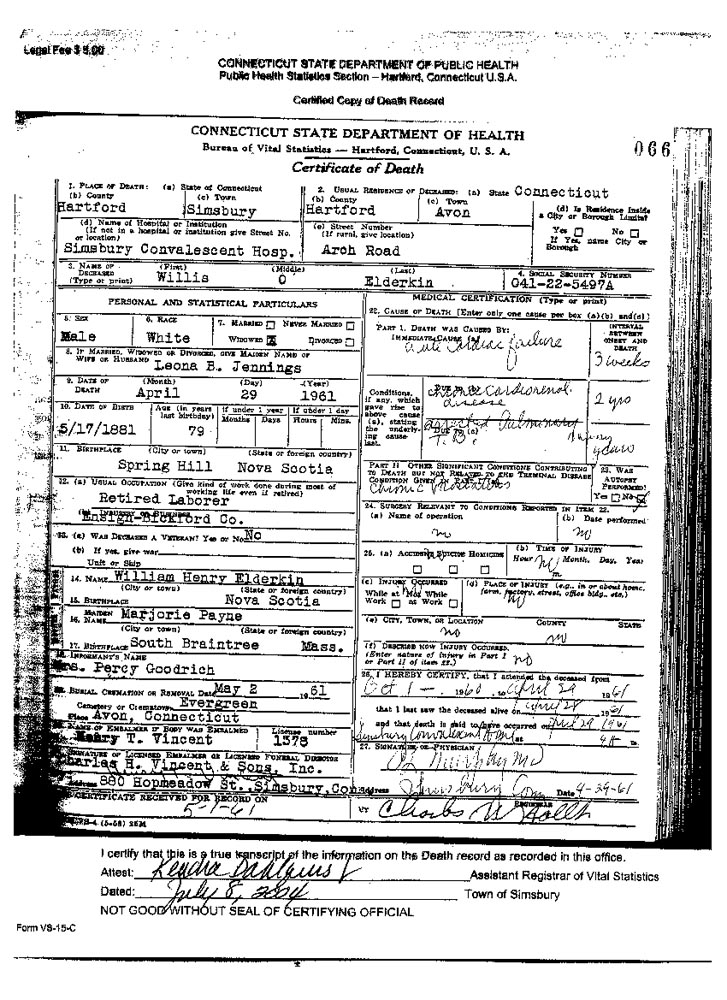 Legal Fee $ 5.00
CONNECTICUT STATE DEPARTMENT OF PUBLIC HEALTH
Public Health Statistics Section – Hartford, Connecticut U.S.A.
Certified Copy of Death Record
CONNECTICUT STATE DEPARTMENT OF HEALTH
Bureau of Vital Statistics — Hartford, Connecticut, U. S. A.
066
Certificate of Death
1. PLACE OF DEATH: (a) State of Connecticut
(b) County (c) Town
Hartford Simsbury
(d) Name of Hospital or Institution
(If not in a hospital or institution give Street No. or location)
Simsbury Convalescent Hosp.
2. USUAL RESIDENCE OF DECEASED: (a) State Connecticut
(b) County (c) Town
Hartford Avon
(d) Is Residence Inside a City or Borough Limits?
Yes No
If Yes, name City or Borough
(e) Street Number
(If rural, give location)
Arch Road
3. NAME OF DECEASED (Type or print) (First) (Middle) (Last)
Willis O Elderkin
4. SOCIAL SECURITY NUMBER
041-22-5497A
PERSONAL AND STATISTICAL PARTICULARS
5. SEX
Male
6. RACE
White
7. MARRIED NEVER MARRIED
WIDOWED X DIVORCED
8. IF MARRIED, WIDOWED OR DIVORCED, GIVE MAIDEN NAME OF WIFE OR HUSBAND
Leona B. Jennings
9. DATE OF DEATH (Month) (Day) (Year)
April 29 1961
10. DATE OF BIRTH
5/17/1881
Age (in years last birthday)
79
If under 1 year
Months Days
If under 1 day
Hours Mins.
11. BIRTHPLACE (City or town) (State or foreign country)
Spring Hill Nova Scotia
12. (a) USUAL OCCUPATION (Give kind of work done during most of working life even if retired)
Retired Laborer
Ensign-Bickford Co.
13. (a) WAS DECEASED A VETERAN? Yes or No No
(b) If yes, give war
Unit or Ship
14. NAME William Henry Elderkin
(City or town) (State or foreign country)
15. BIRTHPLACE Nova Scotia
16. MAIDEN NAME Marjorie Payne
(City or town) (State or foreign country)
17. BIRTHPLACE South Braintree Mass.
18. INFORMANT'S NAME
Mrs. Percy Goodrich
BURIAL CREMATION OR REMOVAL Date May 2 1961
Cemetery or Crematory Evergreen
Place Avon, Connecticut
NAME OF EMBALMER IF BODY WAS EMBALMED
Henry T. Vincent
License number
1378
SIGNATURE OF LICENSED EMBALMER OR LICENSED FUNERAL DIRECTOR
Charles H. Vincent & Sons, Inc.
Address 880 Hopmeadow St., Simsbury, Con
CERTIFICATE RECEIVED FOR RECORD ON
5-1-61
(5-58) 25M
MEDICAL CERTIFICATION (Type or print)
22. CAUSE OF DEATH [Enter only one cause per box (a)(b) and(c)]
PART 1. DEATH WAS CAUSED BY:
IMMEDIATE CAUSE (a)
acute Cardiac failure
INTERVAL BETWEEN ONSET AND DEATH
3 weeks
Conditions, if any, which gave rise to above cause (a), stating the underlying cause last.
Chronic Cardiorenal disease
2 yrs
arrested Pulmonary T.B.
many years
PART II OTHER SIGNIFICANT CONDITIONS CONTRIBUTING TO DEATH BUT NOT RELATED TO THE TERMINAL DISEASE CONDITION GIVEN IN PART I(a)
Chronic Prostatitis
23. WAS AUTOPSY PERFORMED?
Yes No
24. SURGERY RELEVANT TO CONDITIONS REPORTED IN ITEM 22.
(a) Name of operation
no
(b) Date performed
no
25. (a) ACCIDENT SUICIDE HOMICIDE
(b) TIME OF INJURY
Hour Month, Day, Year
(c) INJURY OCCURRED
While at Work Not While at Work
(d) PLACE OF INJURY (e.g., in or about home, farm, factory, street, office bldg., etc.)
no
(e) CITY, TOWN, OR LOCATION COUNTY STATE
no no
(f) DESCRIBE HOW INJURY OCCURRED.
(Enter nature of injury in Part I or Part II of item 22.)
no
26. I HEREBY CERTIFY, that I attended the deceased from
Oct 1 – 1960 to April 29 1961
that I last saw the deceased alive on April 28 1961
and that death is said to have occurred on April 29 1961
Simsbury Convalescent Hosp at
27. SIGNATURE OF PHYSICIAN
Murphy MD
Address Simsbury Conn Date 4-29-61
BY Charles W REGISTRAR
I certify that this is a true transcript of the information on the Death record as recorded in this office.
Attest: Kendra Assistant Registrar of Vital Statistics
Dated: July 8, 2024 Town of Simsbury
NOT GOOD WITHOUT SEAL OF CERTIFYING OFFICIAL
Form VS-15-C